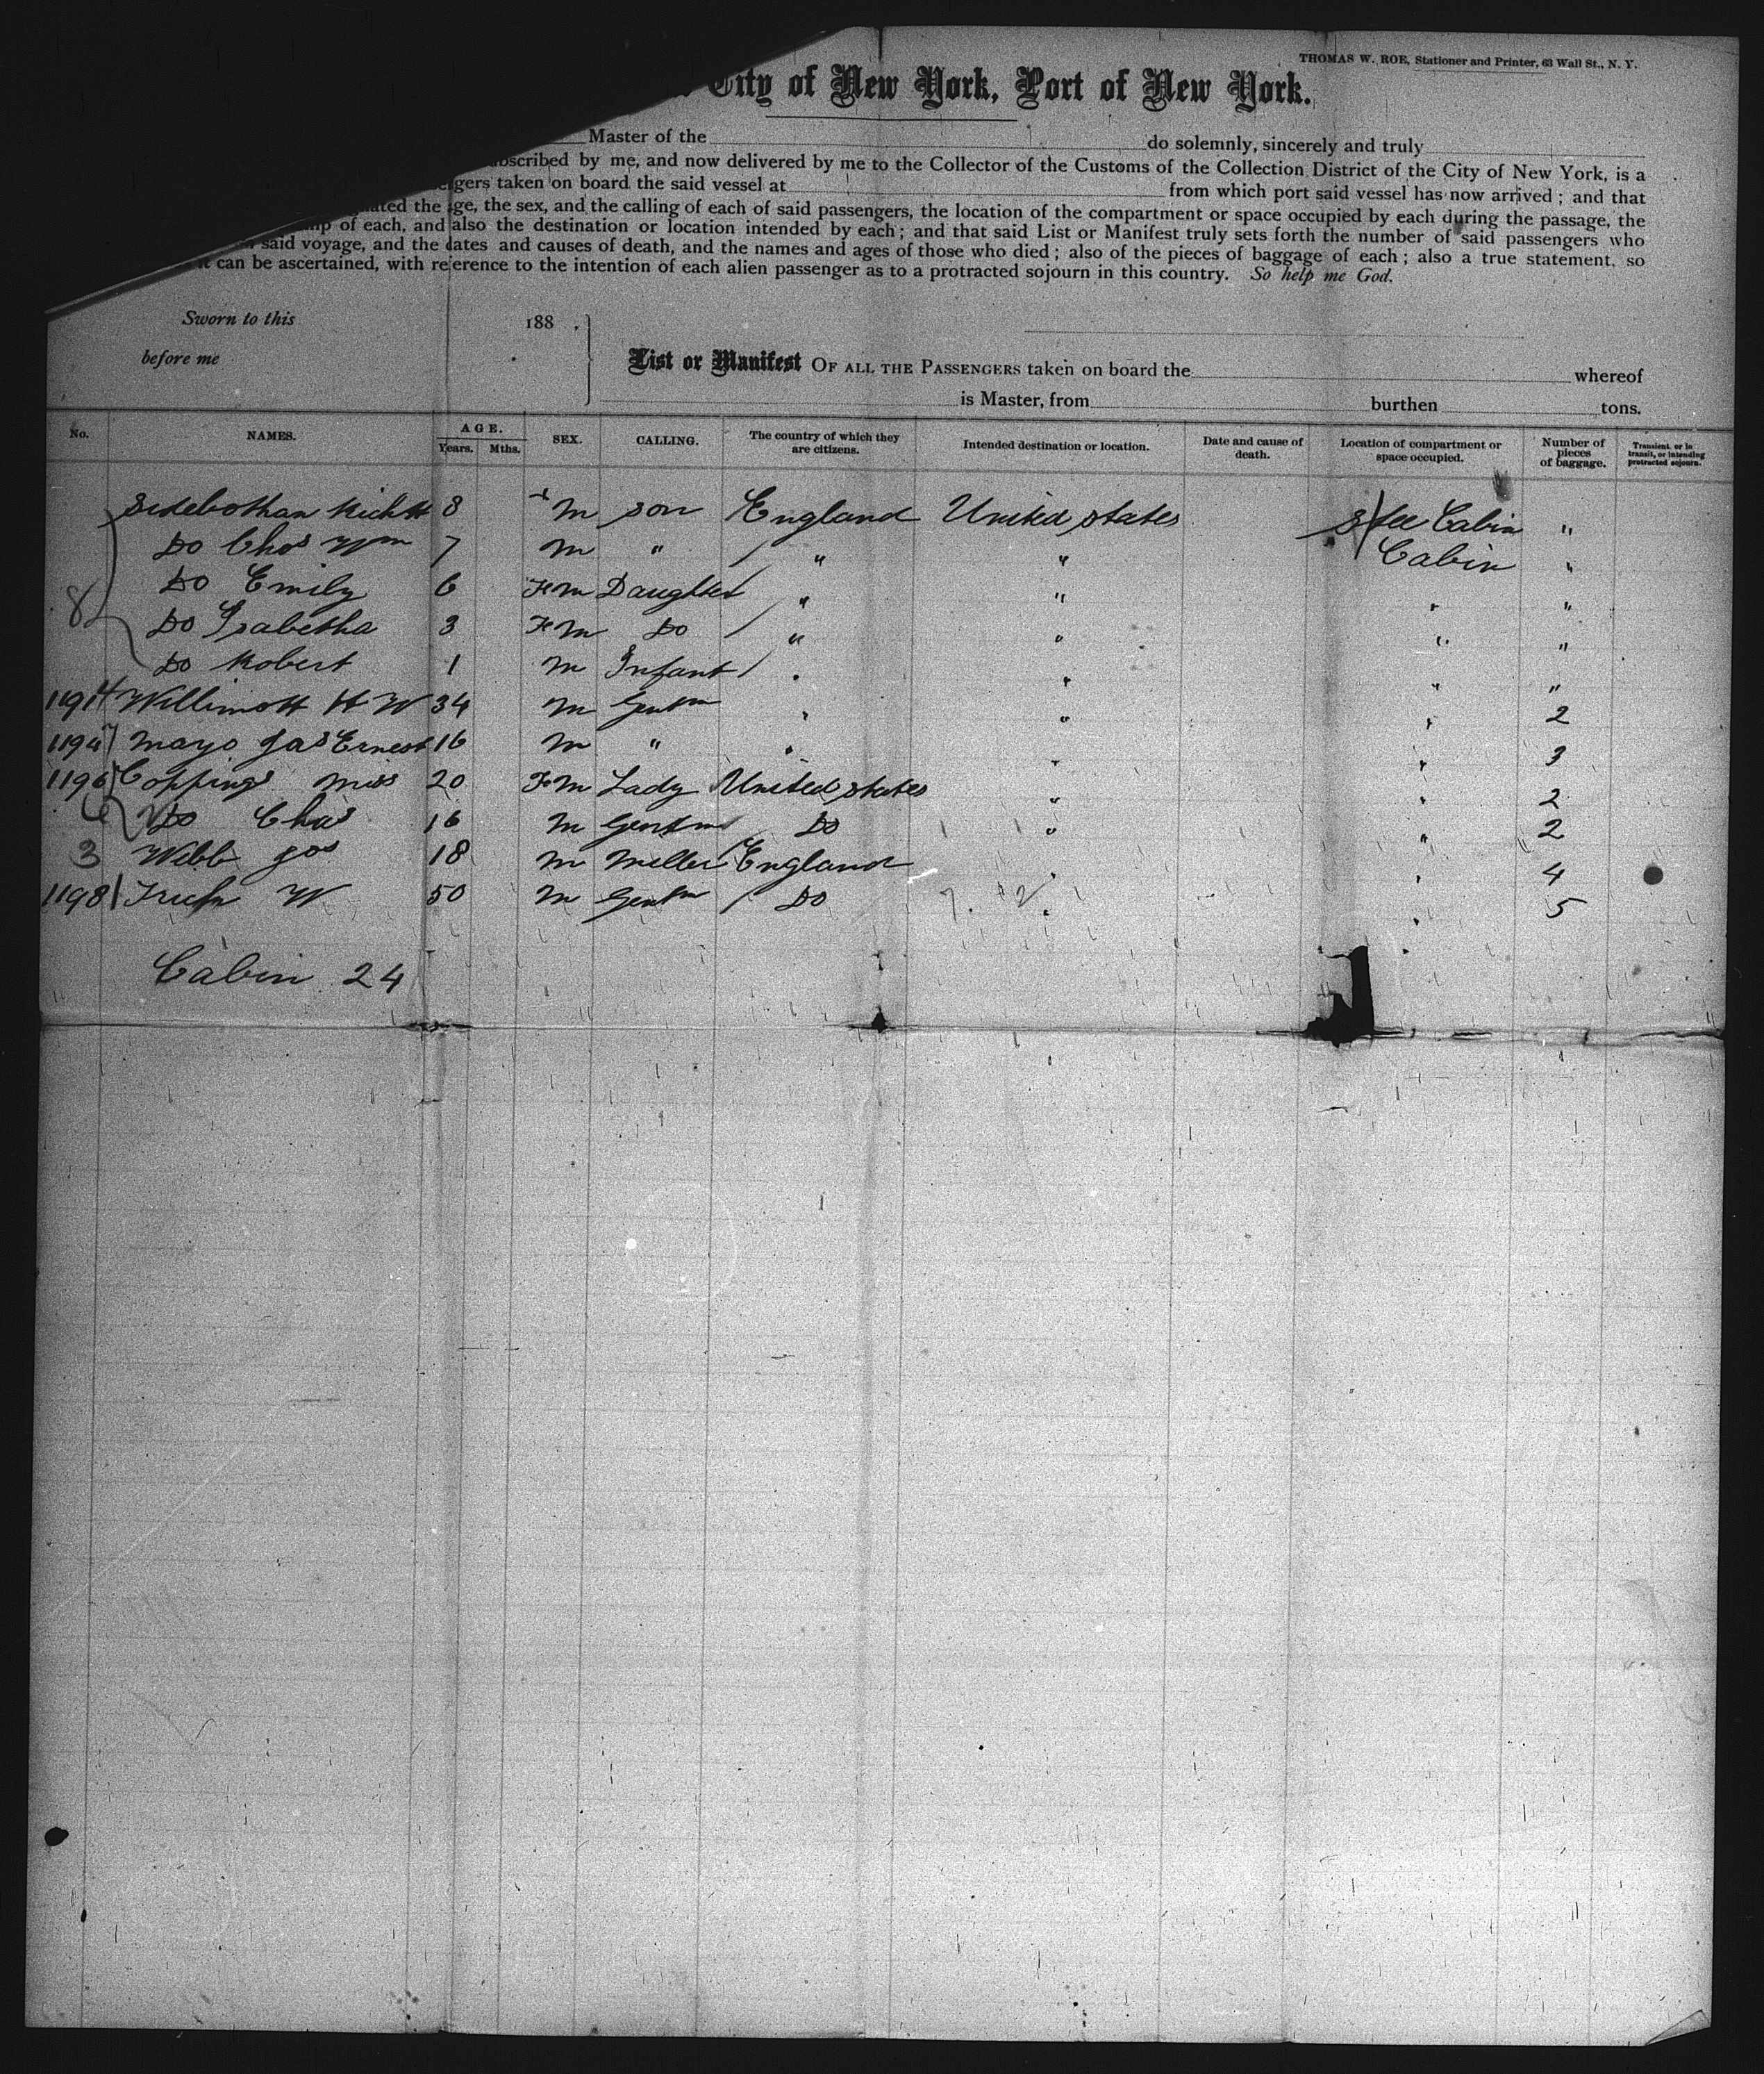 THOMAS W. ROE, Stationer and Printer, 63 Wall St., N. Y.
City of New York, Port of New York.
Master of the do solemnly, sincerely and truly
by me, and now delivered by me to the Collector of the Customs of the Collection District of the City of New York, is a
taken on board the said vessel at from which port said vessel has now arrived; and that
the age, the sex, and the calling of each of said passengers, the location of the compartment or space occupied by each during the passage, the
of each, and also the destination or location intended by each; and that said List or Manifest truly sets forth the number of said passengers who
said voyage, and the dates and causes of death, and the names and ages of those who died; also of the pieces of baggage of each; also a true statement, so
it can be ascertained, with reference to the intention of each alien passenger as to a protracted sojourn in this country. So help me God.
Sworn to this 188 .
before me
List or Manifest OF ALL THE PASSENGERS taken on board the whereof
is Master, from burthen tons.
No. NAMES. AGE. Years. Mths. SEX. CALLING. The country of which they are citizens. Intended destination or location. Date and cause of death. Location of compartment or space occupied. Number of pieces of baggage. Transient, or in transit, or intending protracted sojourn.
Sidebothan Richd 8 M son England United states Cabin "
Do Chas Wm 7 M " " " Cabin "
Do Emily 6 Fm Daughter " " " "
8 Do Isabetha 3 Fm Do " " " "
Do Robert 1 M Infant " " " "
1194 Willimott H W 34 M Gentm " " " 2
Mayo Jas Ernest 16 M " " " " 3
1196 Coppings Miss 20 Fm Lady United states " " 2
Do Chas 16 M Gentm Do " " 2
3 Webb Jos 18 M Miller England " " 4
1198 W 50 M Gentm Do " " 5
Cabin 24